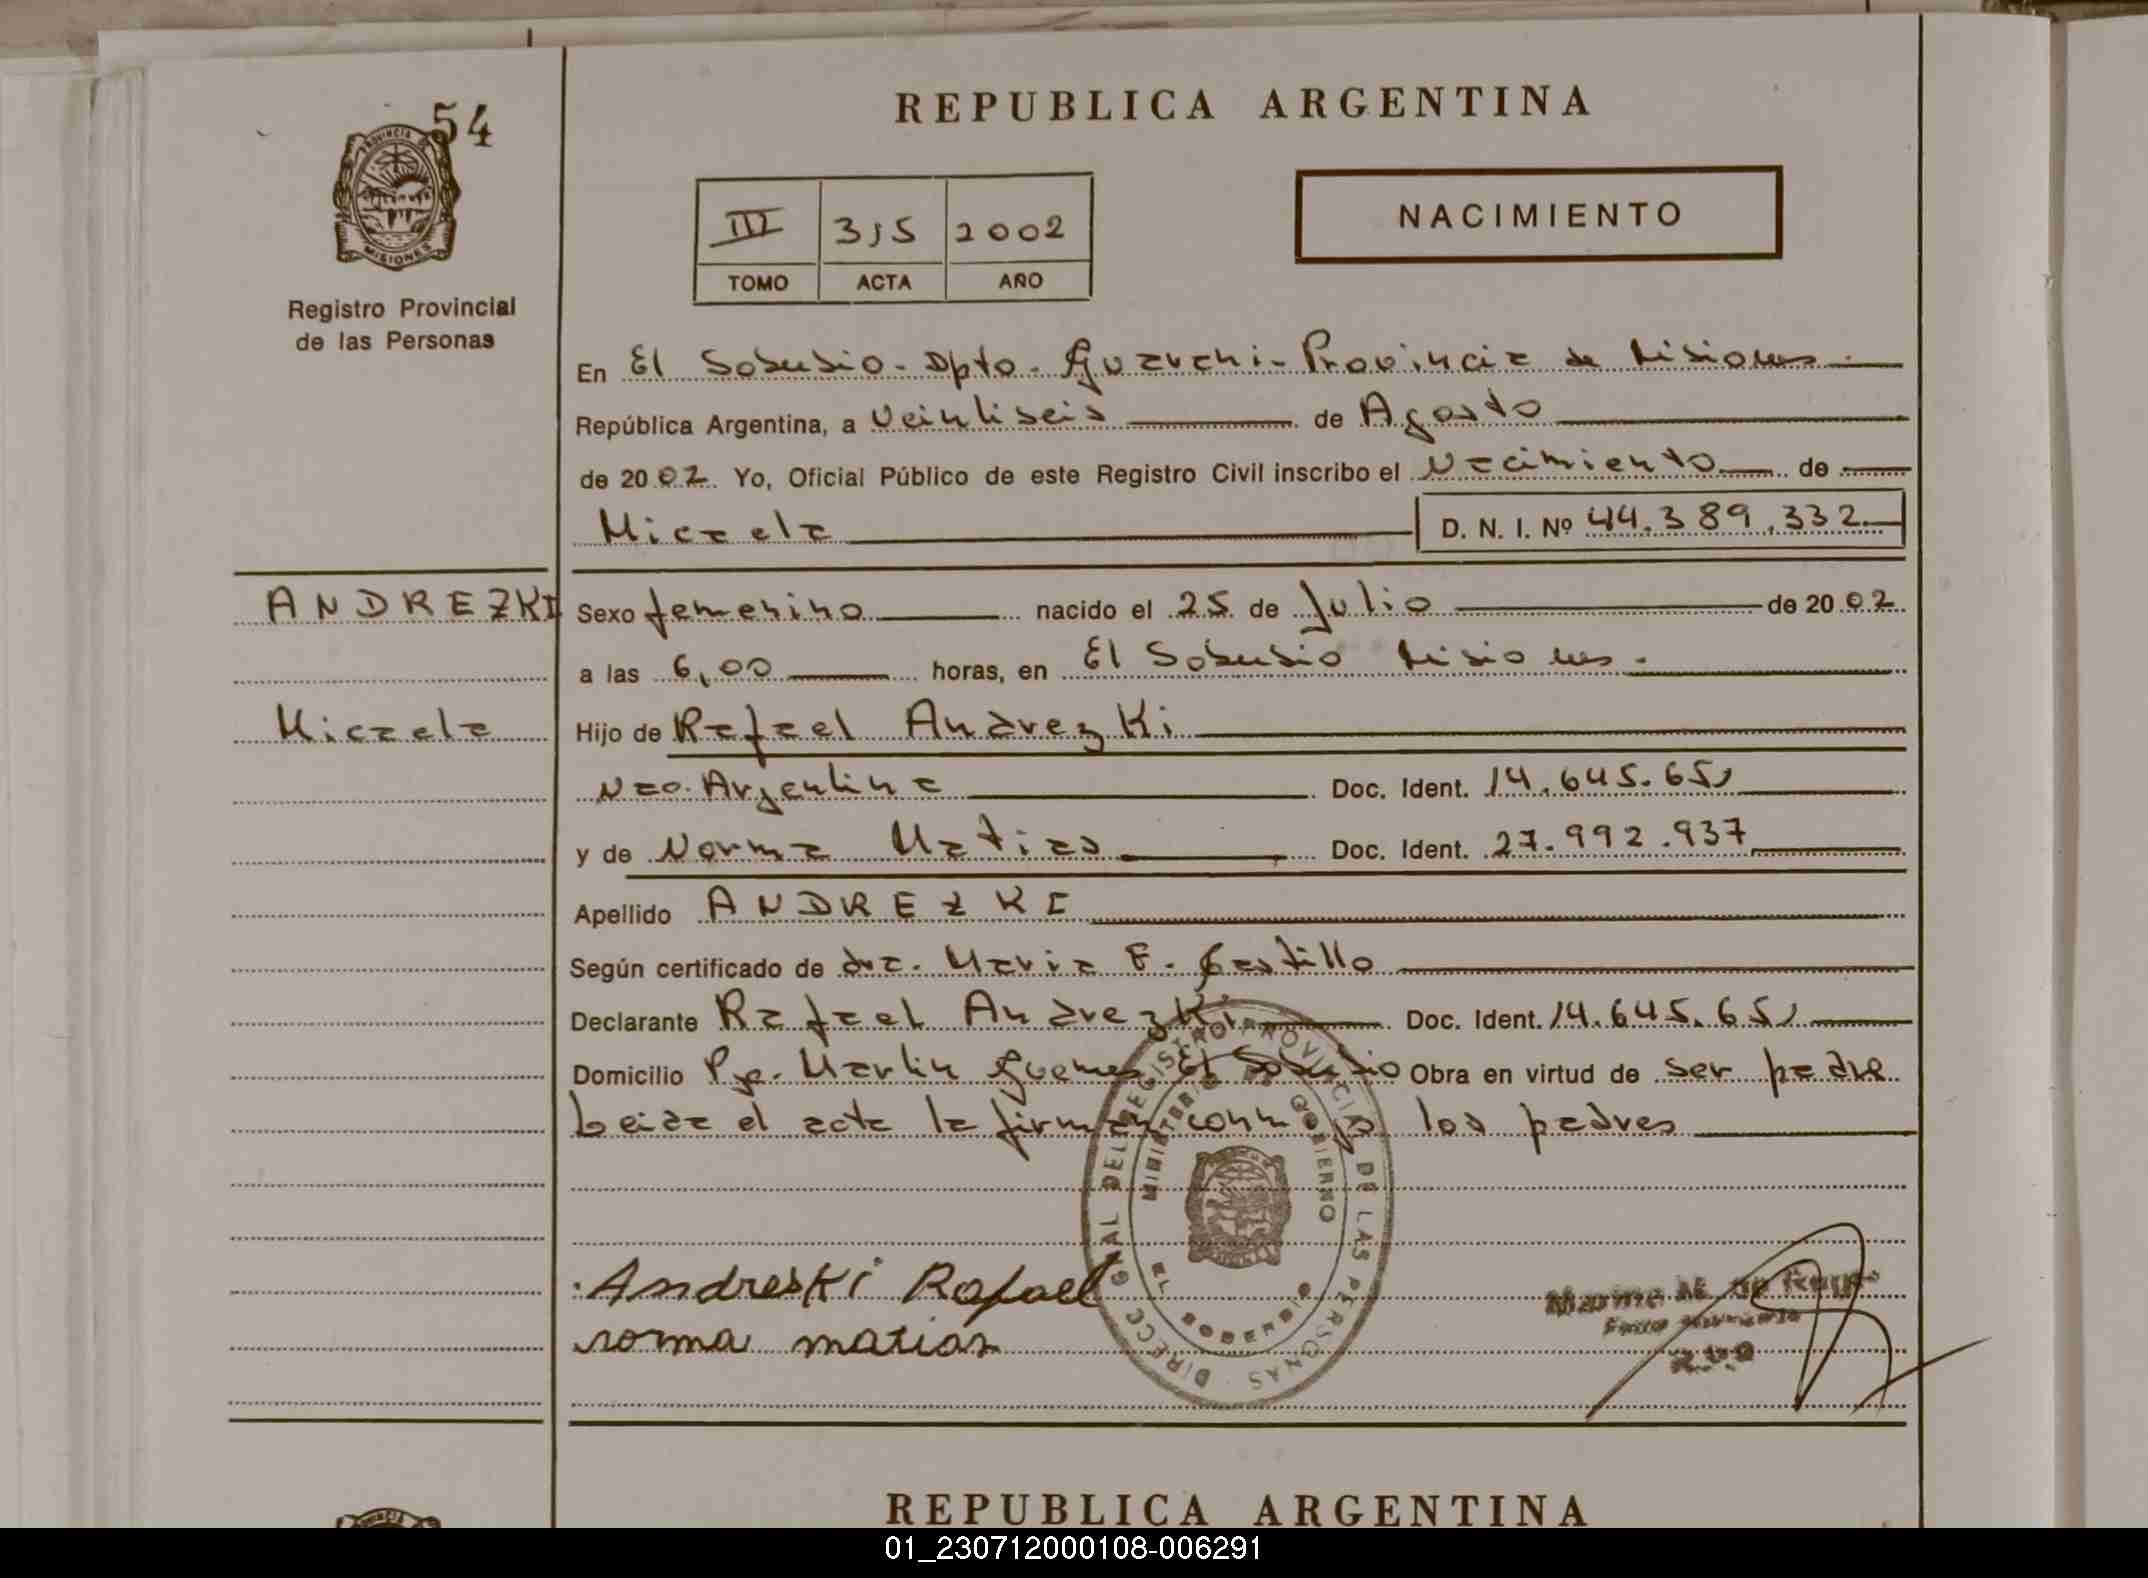 54
PROVINCIA
MISIONES
Registro Provincial
de las Personas
REPUBLICA ARGENTINA
III 315 2002
TOMO ACTA AÑO
NACIMIENTO
En El Soberbio - Dpto. Guarani - Provincia de Misiones.
República Argentina, a veintiseis de Agosto
de 2002. Yo, Oficial Público de este Registro Civil inscribo el Nacimiento de
Micaela D. N. I. Nº 44.389.332
ANDREZKI
Micaela
Sexo femenino nacido el 25 de Julio de 2002
a las 6,00 horas, en El Soberbio Misiones.
Hijo de Rafael Andrezki
Nac. Argentina Doc. Ident. 14.645.651
y de Norma Matias Doc. Ident. 27.992.937
Apellido ANDREZKI
Según certificado de dra. Maria E. Castillo
Declarante Rafael Andrezki Doc. Ident. 14.645.651
Domicilio Pje. Martin Guemes El Soberbio Obra en virtud de ser padre
Leida el acta la firman conmigo los padres
DIRECC. GRAL DEL REGISTRO PROVINCIAL DE LAS PERSONAS
MINISTERIO DE GOBIERNO
EL SOBERBIO
Andreski Rafael
norma matias
REPUBLICA ARGENTINA
01_230712000108-006291